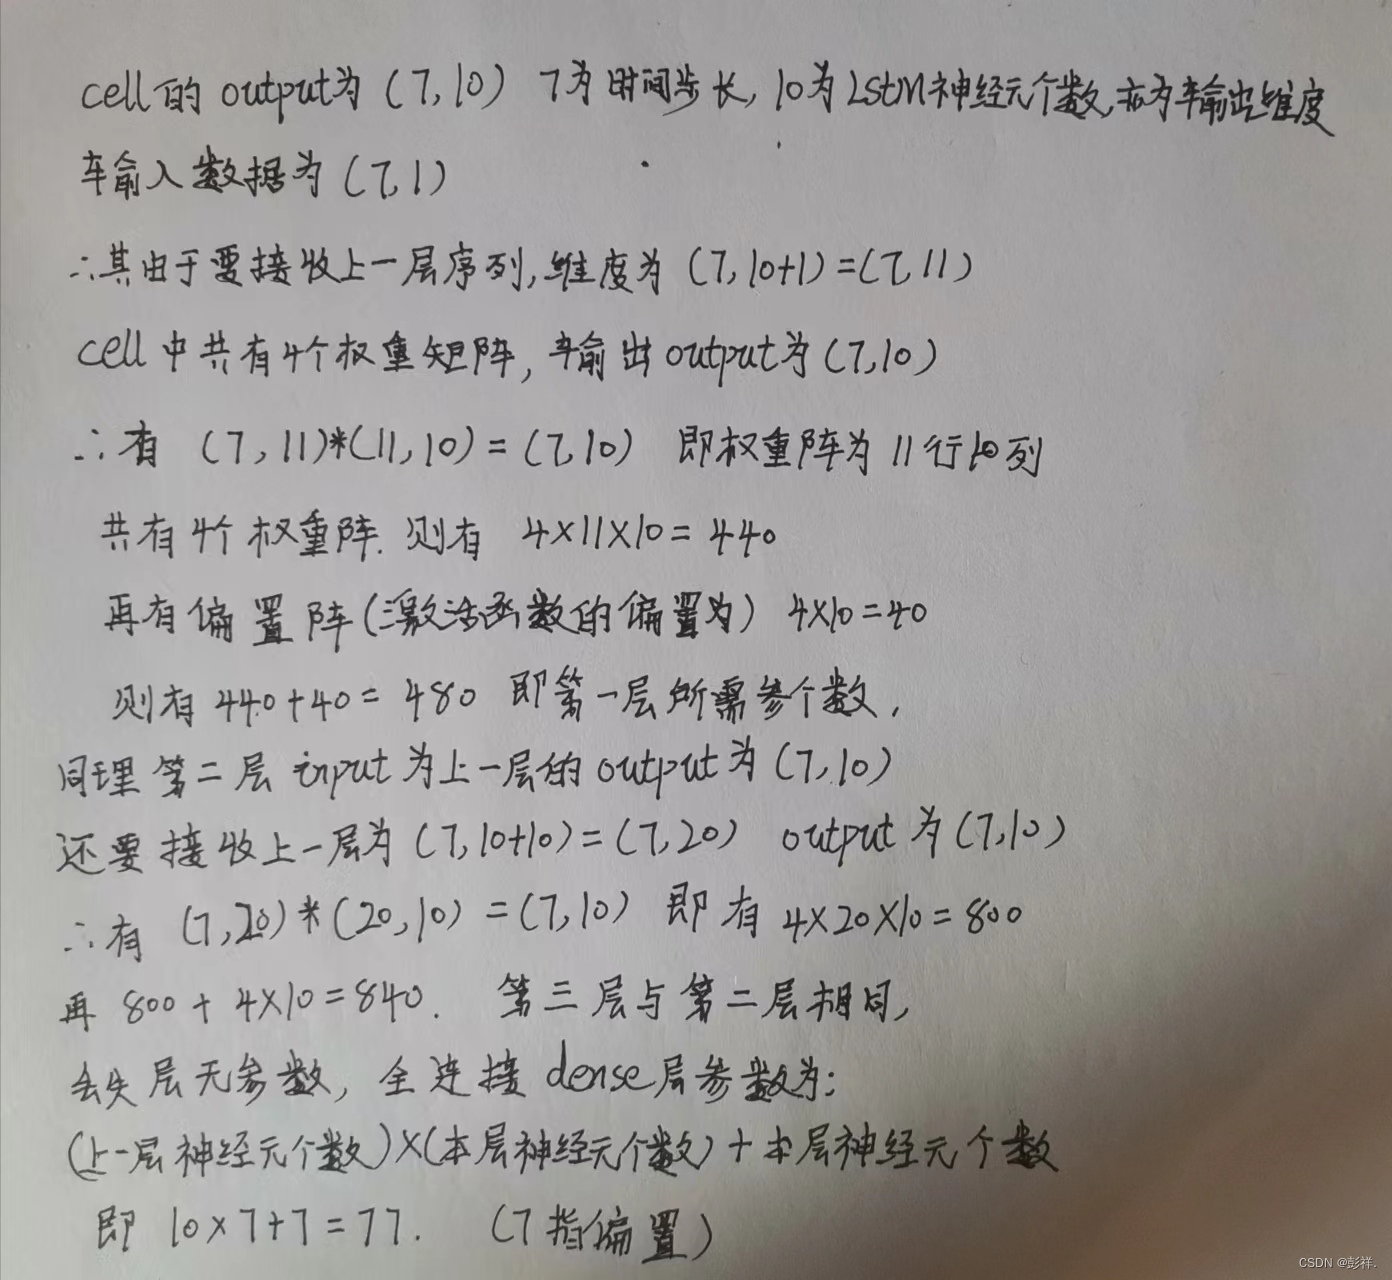 cell的 output为 (7,10) 7为时间步长, 10为LStM神经元个数,亦为输出维度
输入数据为 (7,1)
∴其由于要接收上一层序列,维度为 (7,10+1)=(7,11)
cell 中共有4个权重矩阵, 输出output为(7,10)
∴有 (7,11)*(11,10)=(7,10) 即权重阵为 11行10列
共有4个权重阵. 则有 4×11×10=440
再有偏置阵(激活函数的偏置为) 4×10=40
则有 440+40=480 即第一层所需参个数,
同理第二层 input 为上一层的 output 为 (7,10)
还要接收上一层为 (7,10+10)=(7,20) output 为 (7,10)
∴有 (7,20)*(20,10)=(7,10) 即有 4×20×10=800
再 800+4×10=840. 第三层与第二层相同,
丢失层无参数, 全连接 dense层参数为:
(上一层神经元个数)×(本层神经元个数)+本层神经元个数
即 10×7+7=77. (7指偏置)
CSDN @彭祥.